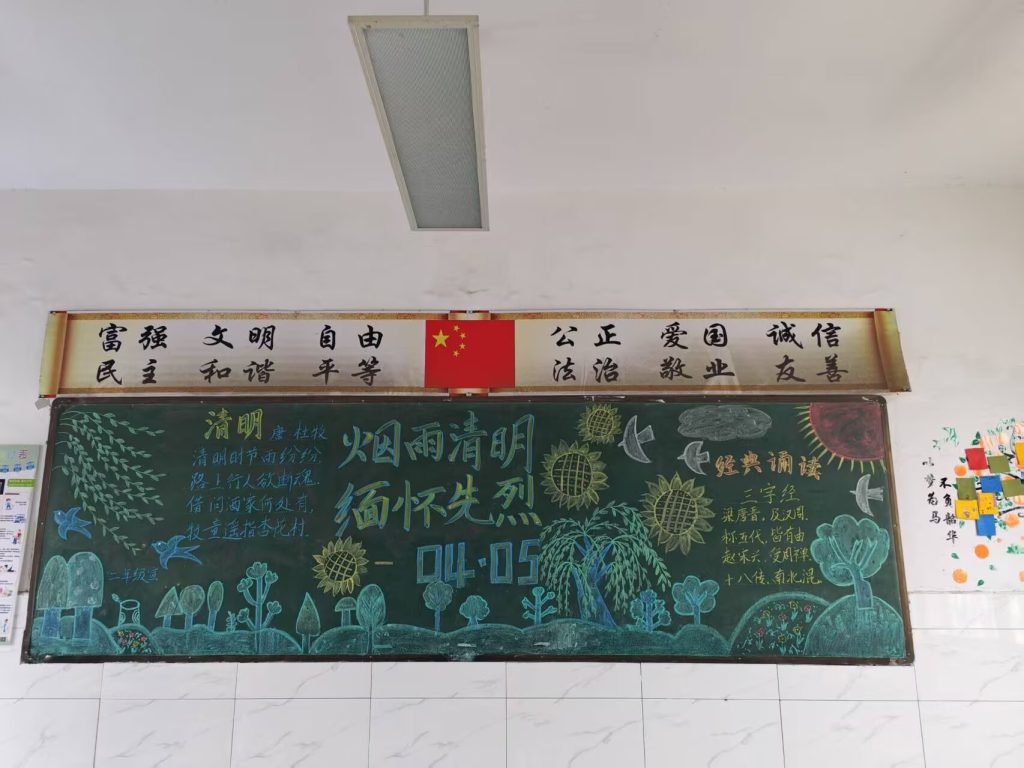 富强 文明 自由 公正 爱国 诚信
民主 和谐 平等 法治 敬业 友善
清明 唐·杜牧
清明时节雨纷纷,
路上行人欲断魂.
借问酒家何处有,
牧童遥指杏花村.
二年级
烟雨清明
缅怀先烈
04·05
经典诵读
三字经
梁唐晋,及汉周.
称五代,皆有由
赵宋兴,受周禅
十八传,南北混.
以梦为马
不负韶华